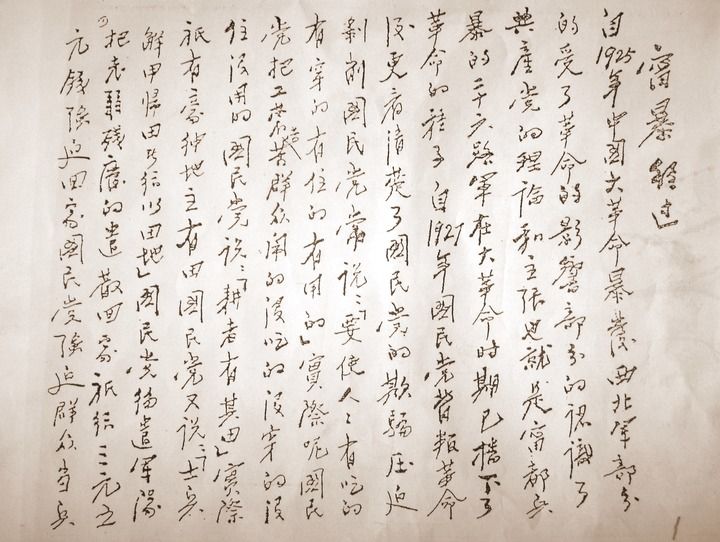 甯暴經过
自1925年中國大革命暴發西北军部分
的受了革命的影響部分的認識了
共產党的理論和主张也就是甯都兵
暴的二十六路军在大革命时期已播下了
革命的種子自1927年國民党背叛革命
後更看清楚了國民党的欺騙压迫
剥削國民党常说:「要使人人有吃的
有穿的有住的有用的」實際呢國民
党把工農劳苦群众闹的没吃的没穿的没
住没用的國民党说:「耕者有其田」實際
祇有豪绅地主有田國民党又说:「士兵
解甲归田時给以田地」國民党编遣军隊
把老弱残廢的遣散回家祇给三元五
元錢強迫回家國民党強迫群众当兵
1